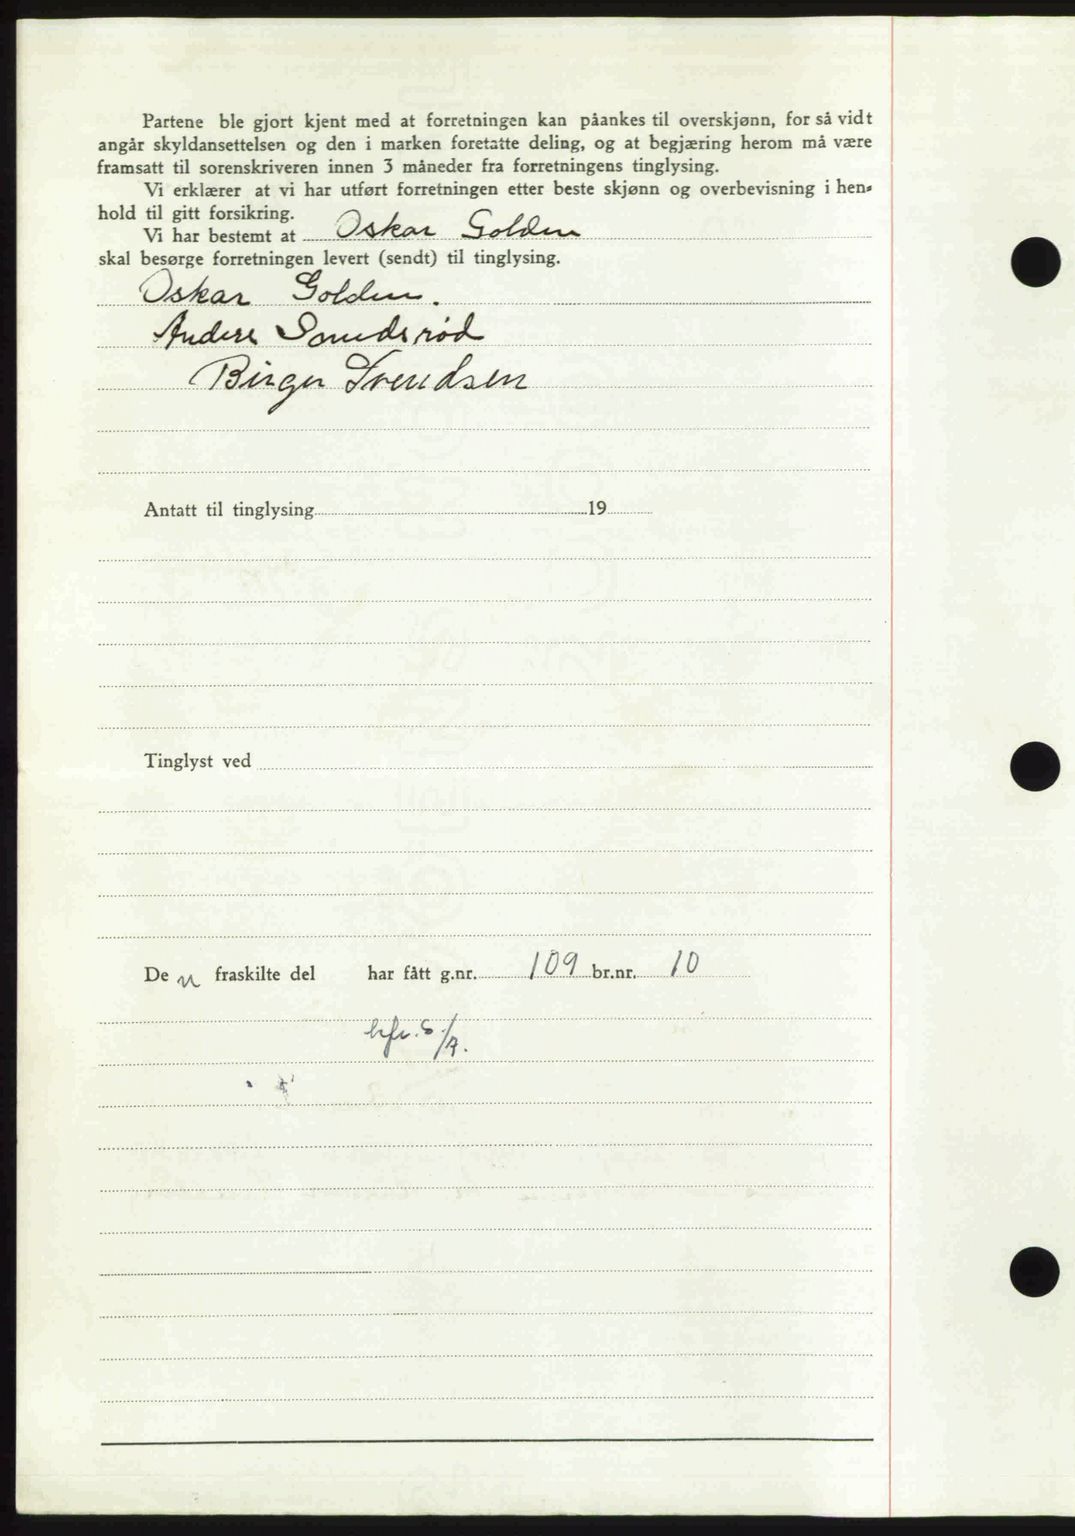 Partene ble gjort kjent med at forretningen kan påankes til overskjønn, for så vidt
angår skyldansettelsen og den i marken foretatte deling, og at begjæring herom må være
framsatt til sorenskriveren innen 3 måneder fra forretningens tinglysing.
Vi erklærer at vi har utført forretningen etter beste skjønn og overbevisning i hen-
hold til gitt forsikring.
Vi har bestemt at Oskar Golden
skal besørge forretningen levert (sendt) til tinglysing.
Oskar Golden.
Anders
Birger Svendsen
Antatt til tinglysing 19
Tinglyst ved
De n fraskilte del har fått g.nr. 109 br.nr. 10